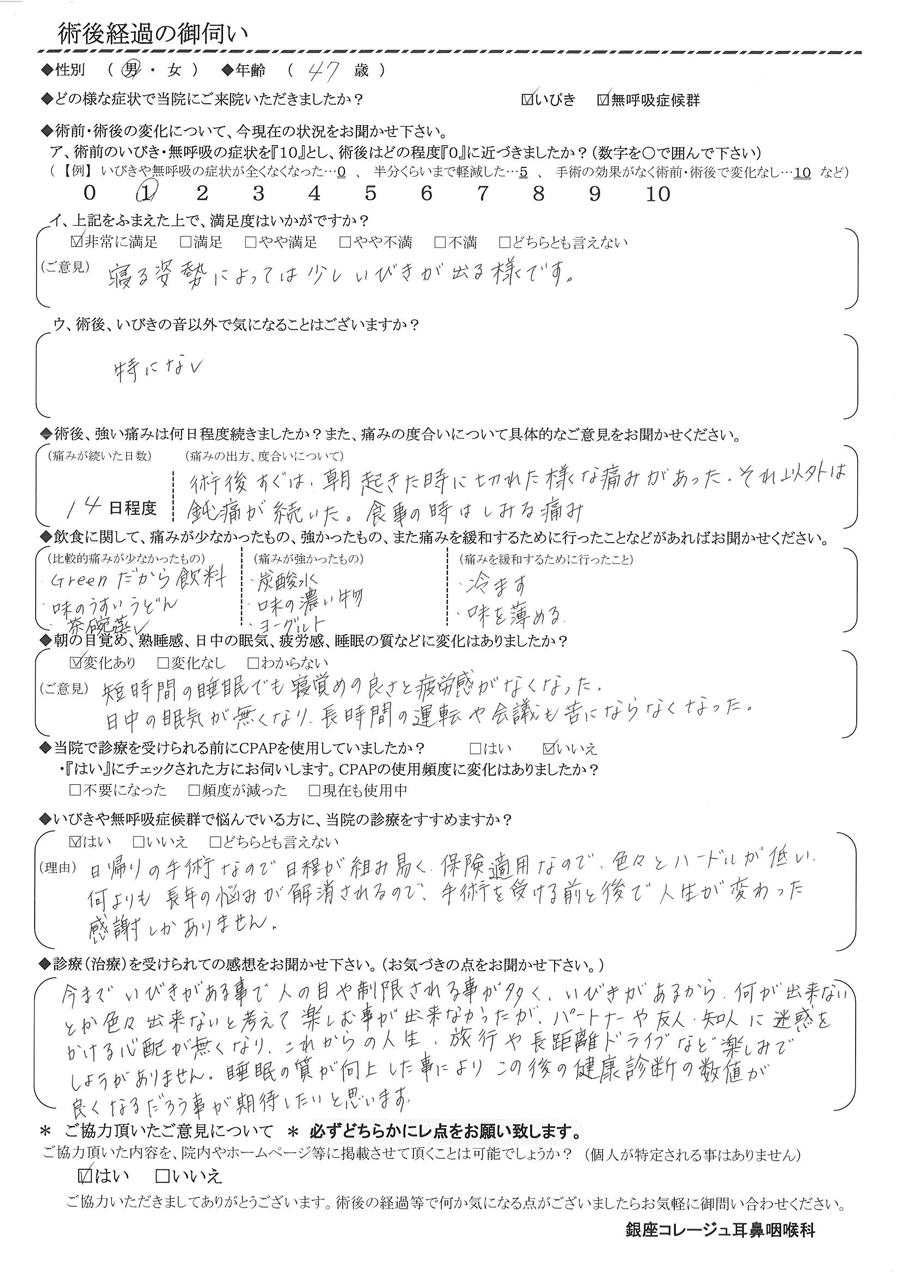 術後経過の御伺い
◆性別 （ 男 ・ 女 ） ◆年齢 （ 47 歳 ）
◆どの様な症状で当院にご来院いただきましたか？ ☑いびき ☑無呼吸症候群
◆術前・術後の変化について、今現在の状況をお聞かせ下さい。
ア、術前のいびき・無呼吸の症状を『10』とし、術後はどの程度『0』に近づきましたか？（数字を〇で囲んで下さい）
（【例】 いびきや無呼吸の症状が全くなくなった…0 、 半分くらいまで軽減した…5 、 手術の効果がなく術前・術後で変化なし…10 など）
0 1 2 3 4 5 6 7 8 9 10
イ、上記をふまえた上で、満足度はいかがですか？
☑非常に満足 □満足 □やや満足 □やや不満 □不満 □どちらとも言えない
（ご意見） 寝る姿勢によっては少しいびきが出る様です。
ウ、術後、いびきの音以外で気になることはございますか？
特になし
◆術後、強い痛みは何日程度続きましたか？また、痛みの度合いについて具体的なご意見をお聞かせください。
（痛みが続いた日数） （痛みの出方、度合いについて）
術後すぐは、朝起きた時に切れた様な痛みがあった。それ以外は
14 日程度 鈍痛が続いた。食事の時はしみる痛み
◆飲食に関して、痛みが少なかったもの、強かったもの、また痛みを緩和するために行ったことなどがあればお聞かせください。
（比較的痛みが少なかったもの） （痛みが強かったもの） （痛みを緩和するために行ったこと）
・Greenだから飲料 ・炭酸水 ・冷ます
・味のうすいうどん ・味の濃い物 ・味を薄める
・茶碗蒸し ・ヨーグルト
◆朝の目覚め、熟睡感、日中の眠気、疲労感、睡眠の質などに変化はありましたか？
☑変化あり □変化なし □わからない
（ご意見） 短時間の睡眠でも寝覚めの良さと疲労感がなくなった。
日中の眠気が無くなり、長時間の運転や会議も苦にならなくなった。
◆当院で診療を受けられる前にCPAPを使用していましたか？ □はい ☑いいえ
・『はい』にチェックされた方にお伺いします。CPAPの使用頻度に変化はありましたか？
□不要になった □頻度が減った □現在も使用中
◆いびきや無呼吸症候群で悩んでいる方に、当院の診療をすすめますか？
☑はい □いいえ □どちらとも言えない
（理由） 日帰りの手術なので日程が組み易く、保険適用なので、色々とハードルが低い。
何よりも長年の悩みが解消されるので、手術を受ける前と後で人生が変わった
感謝しかありません。
◆診療（治療）を受けられての感想をお聞かせ下さい。（お気づきの点をお聞かせ下さい。）
今まで いびきがある事で人の目や制限される事が多く、いびきがあるから、何が出来ない
とか色々出来ないと考えて楽しむ事が出来なかったが、パートナーや友人・知人に迷惑を
かける心配が無くなり、これからの人生、旅行や長距離ドライブなど楽しみで
しょうがありません。睡眠の質が向上した事により この後の健康診断の数値が
良くなるだろう事が期待したいと思います。
＊ ご協力頂いたご意見について ＊ 必ずどちらかにレ点をお願い致します。
ご協力頂いた内容を、院内やホームページ等に掲載させて頂くことは可能でしょうか？ （個人が特定される事はありません）
☑はい □いいえ
ご協力いただきましてありがとうございます。術後の経過等で何か気になる点がございましたらお気軽に御問い合わせください。
銀座コレージュ耳鼻咽喉科